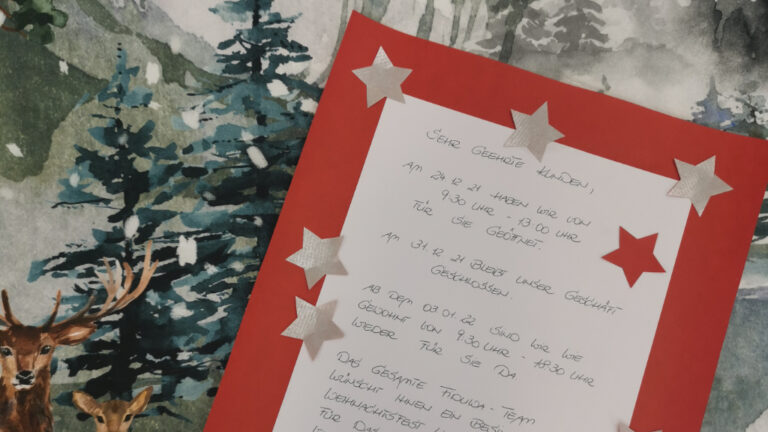 SEHR GEEHRTE KUNDEN,
AM 24.12.21 HABEN WIR VON
9:30 UHR - 13:00 UHR
FÜR SIE GEÖFFNET.
AM 31.12.21 BLEIBT UNSER GESCHÄFT
GESCHLOSSEN.
AB DEM 03.01.22 SIND WIR WIE
GEWOHNT VON 9:30 UHR - 18:30 UHR
WIEDER FÜR SIE DA
DAS GESAMTE FIDUWA-TEAM
WÜNSCHT IHNEN EIN
WEIHNACHTSFEST
FÜR DAS